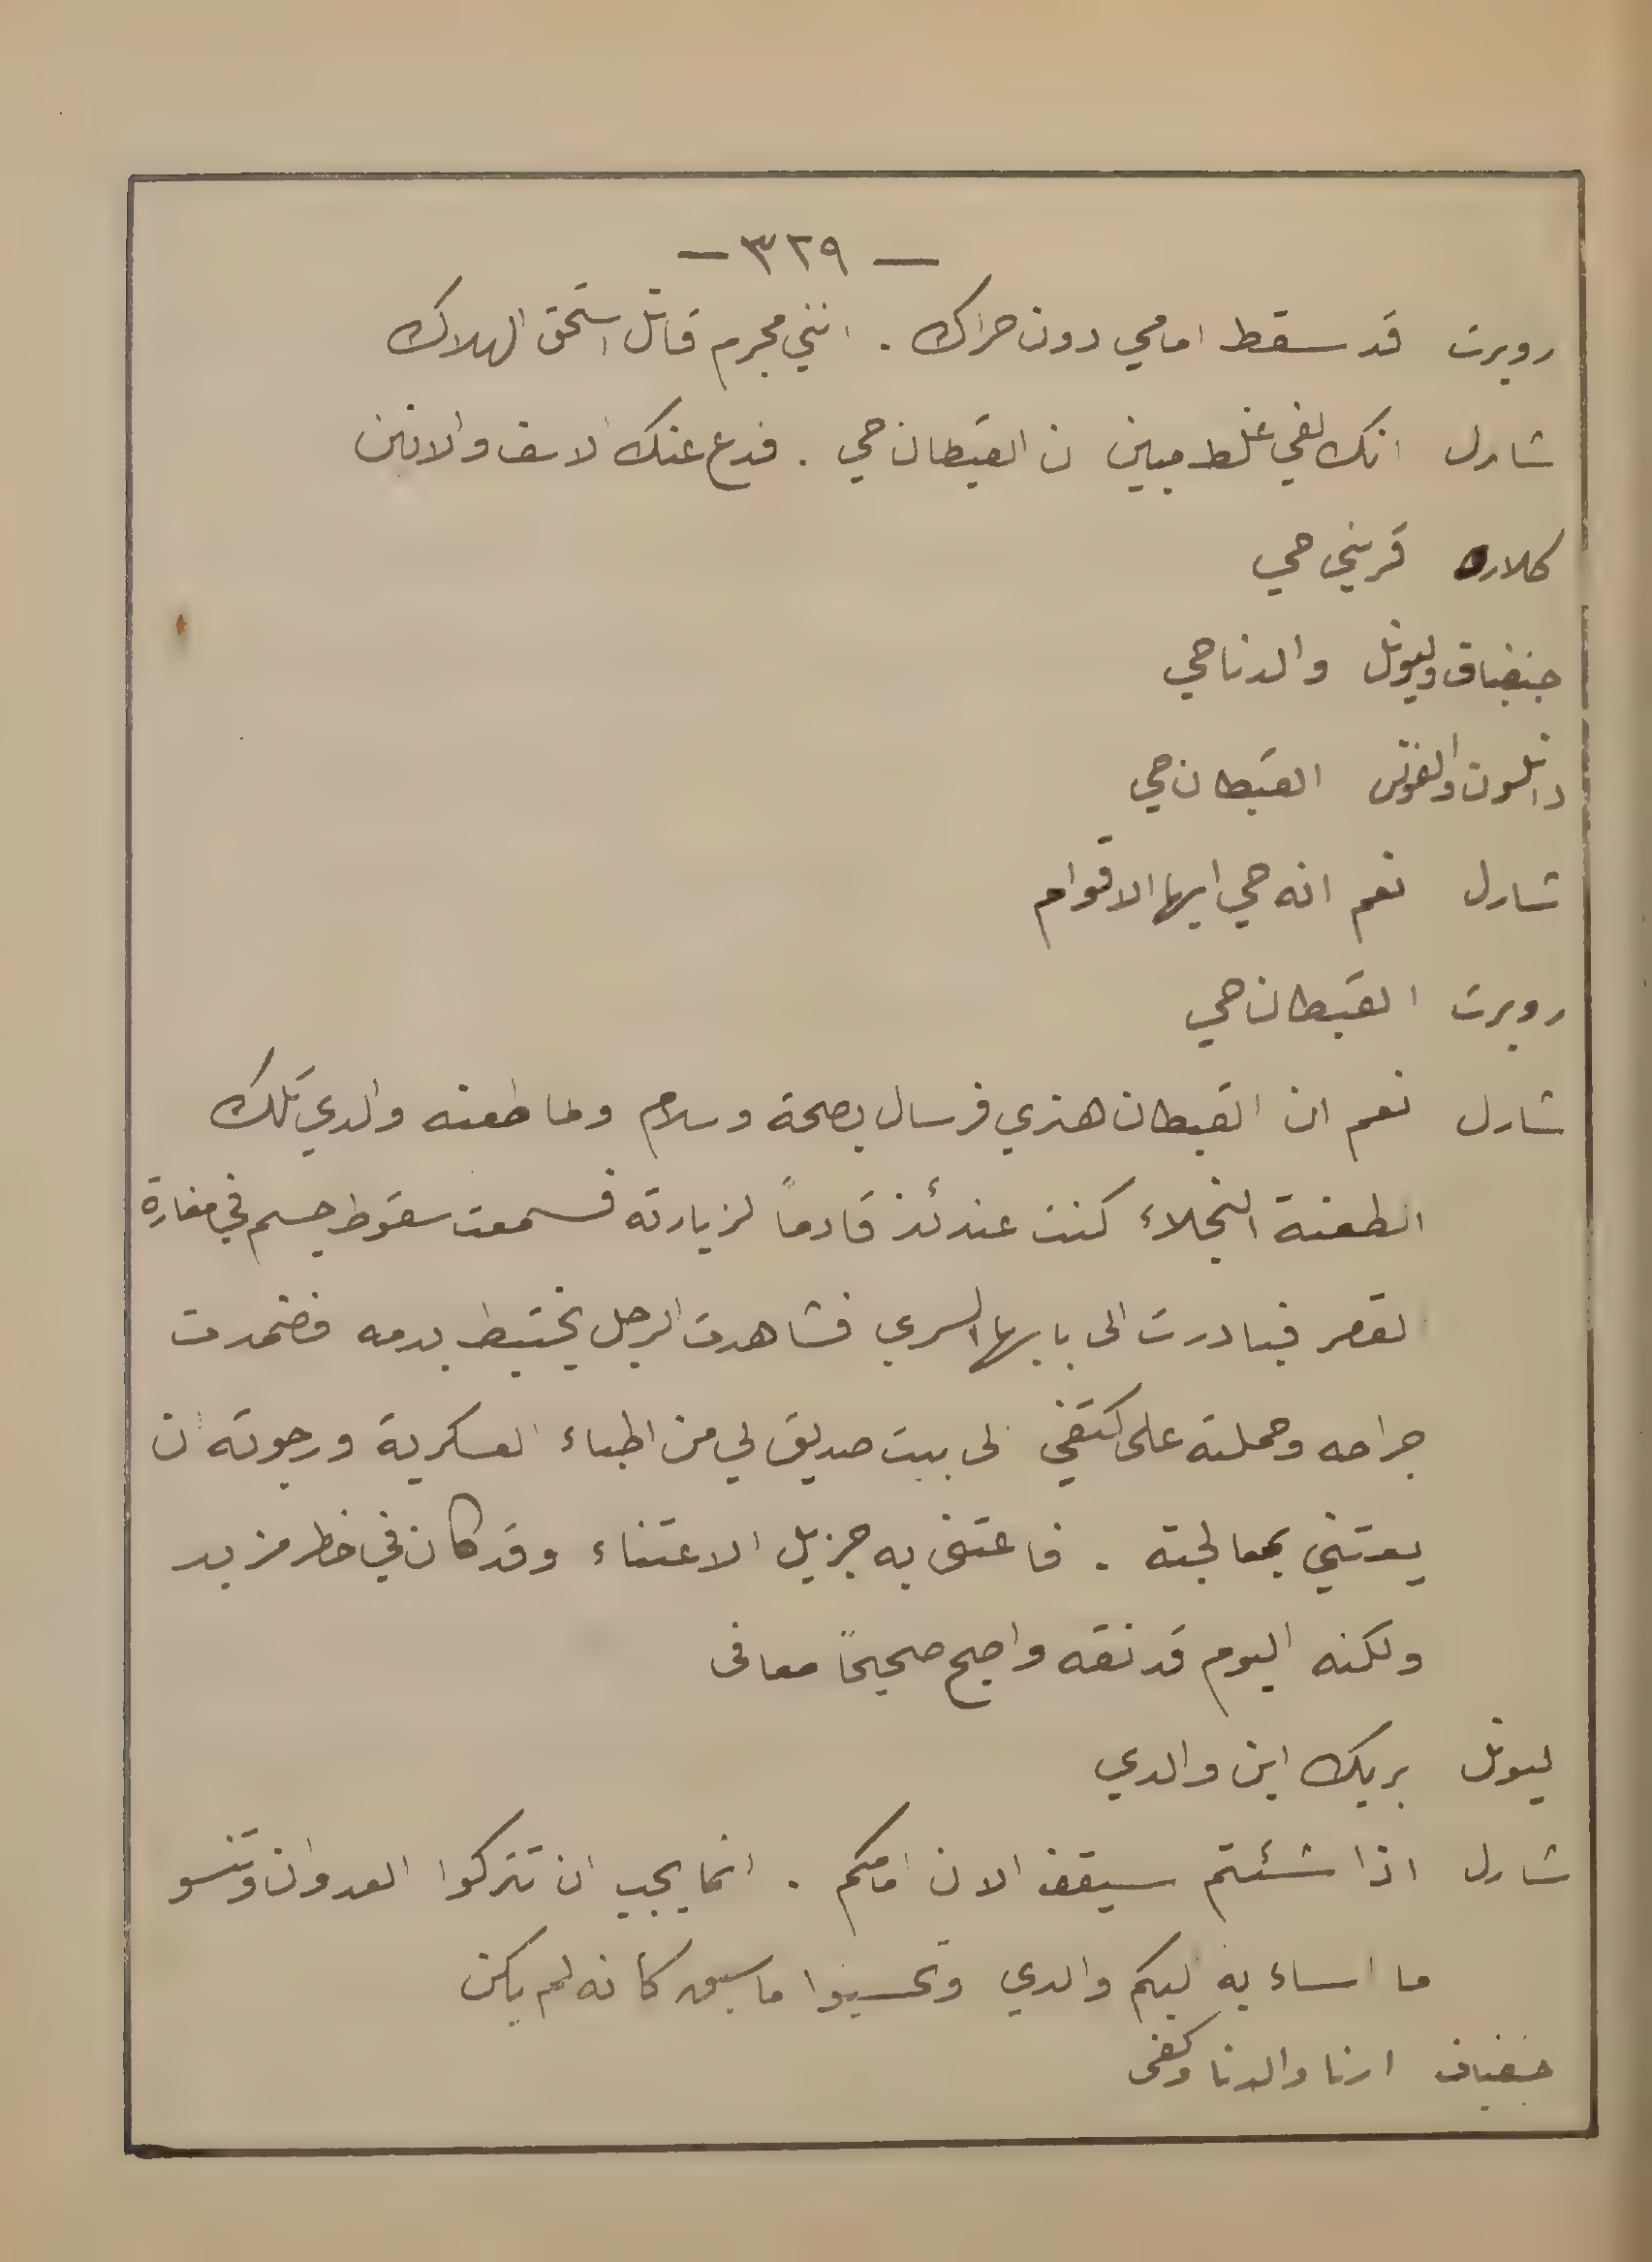 — ٣٢٩ —
روبرت قد سقط امامي دون حراك . انني مجرم قاتل استحق الهلاك
شارل انك لفي غلط مبين ن القبطان حي . فدع عنك الاسف والانين
كلاره قريني حي
جنفياف وليونل والدنا حي
دانلسون والفونس القبطان حي
شارل نعم انه حي ايها الاقوام
روبرت القبطان حي
شارل نعم ان القبطان هنري فرسال بصحة وسلام ولما طعنه والدي تلك
الطعنة النجلاء كنت عندئذ قادماً لزيارته فسمعت سقوط جسم في مغارة
القصر فبادرت الى بابها السري فشاهدت الرجل يختبط بدمه فضمدت
جراحه وحملته على كتفي الى بيت صديق لي من اطباء العسكرية ورجوته ان
يعتني بمعالجته . فاعتنى به جزيل الاعتناء وقد كان في خطر مزيد
ولكنه اليوم قد نقه واصبح صحيحاً معافى
ليونل بربك اين والدي
شارل اذا شئتم سيقف الان امامكم . انما يجب ان تتركوا العدوان وتنسو
ما اساء به ليكم والدي وتحسبوا ما سبق كانه لم يكن
جنفياف ارنا والدنا وكفى